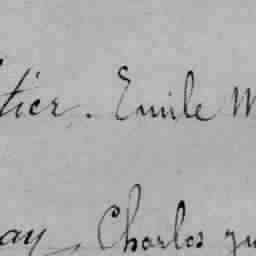 tier. Emile M
ay, Charles